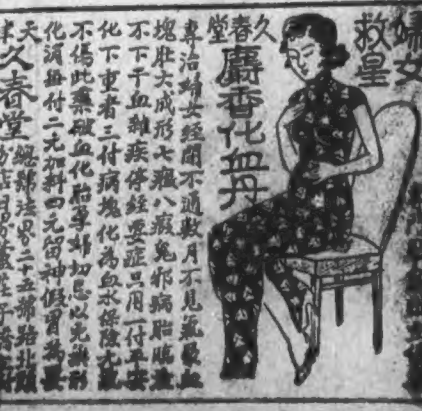 婦女
救星
久春堂
麝香化血丹
專治婦女經閉不通數月不見氣裹血
塊肚大成形七癥八瘕鬼邪病胎臨產
不下干血雜疾停經要症只用一付平安
化下重者三付病塊化為血水保險尤氣
不傷此藥破血化胎孕婦切忌以免難形
化消每付二元加料四元留神假冒為要
天津久春堂
總號法界二十五號路北頭